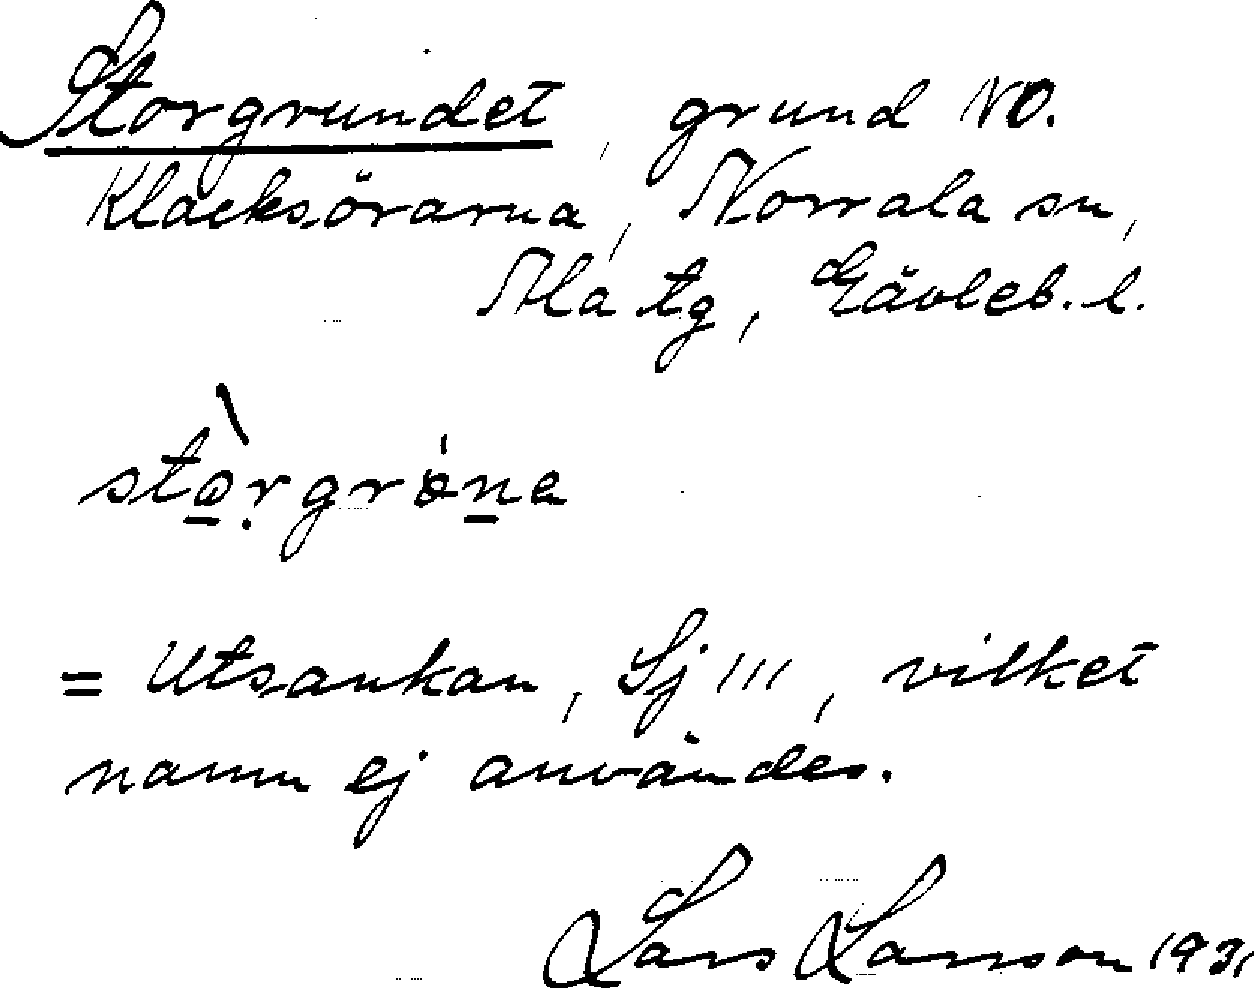 Storgrundet, grund NO.
Klacksörarna, Norrala sn,
Ala tg, Gävleb. l.
stò̱ṛgróṉe
= Utsankan, Sj III, vilket
namn ej användes.
Lars Larsson 1931